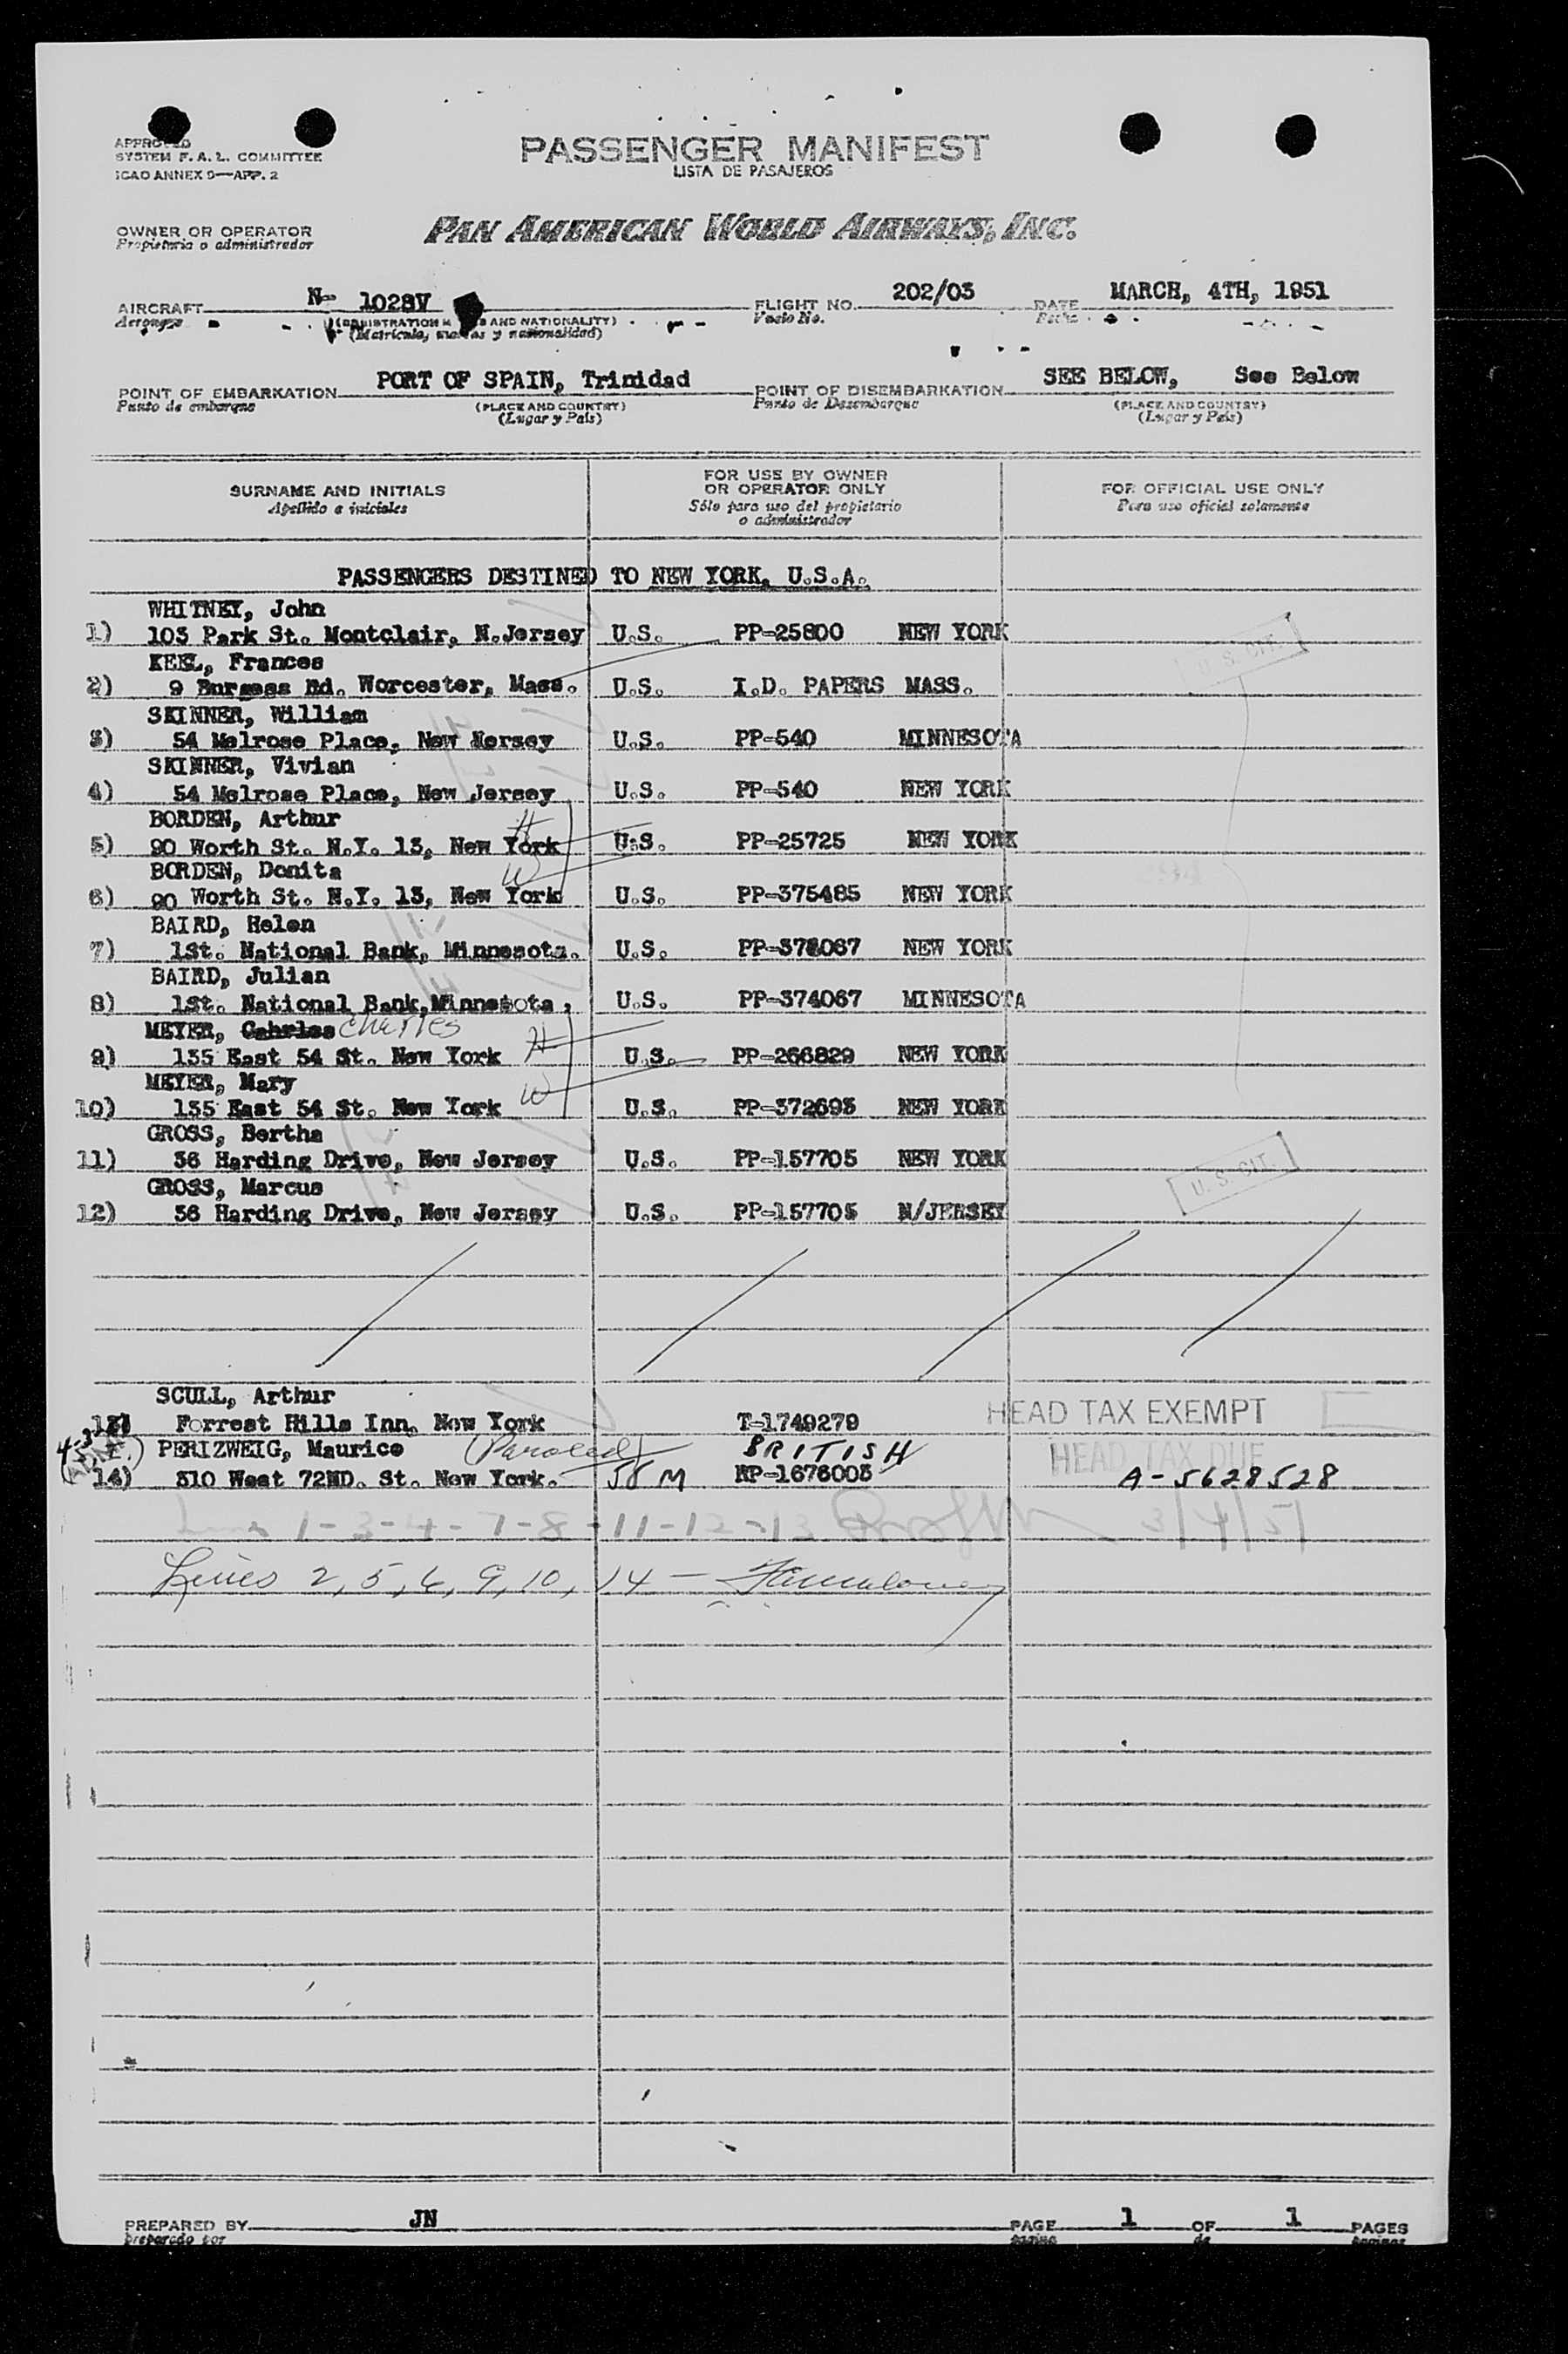 APPROVED
SYSTEM F. A. L. COMMITTEE
ICAO ANNEX 9—APP. 2
PASSENGER MANIFEST
LISTA DE PASAJEROS
OWNER OR OPERATOR
Propietario o administrador
PAN AMERICAN WORLD AIRWAYS, INC.
AIRCRAFT N- 1028V FLIGHT NO. 202/03 DATE MARCH, 4TH, 1951
Aeronave (REGISTRATION AND NATIONALITY) Fecha
(Matrícula, marcas y nacionalidad)
POINT OF EMBARKATION PORT OF SPAIN, Trinidad POINT OF DISEMBARKATION SEE BELOW, See Below
Punto de embarque (PLACE AND COUNTRY) Punto de Desembarque (PLACE AND COUNTRY)
(Lugar y País) (Lugar y País)
SURNAME AND INITIALS
Apellido e iniciales
FOR USE BY OWNER
OR OPERATOR ONLY
Sólo para uso del propietario
o administrador
FOR OFFICIAL USE ONLY
Para uso oficial solamente
PASSENGERS DESTINED TO NEW YORK, U.S.A.
WHITNEY, John
1) 103 Park St. Montclair, N.Jersey U.S. PP-25800 NEW YORK
U. S. CIT.
KEEL, Frances
2) 9 Burgess Rd. Worcester, Mass. U.S. I.D. PAPERS MASS.
SKINNER, William
3) 54 Melrose Place, New Nersey U.S. PP-540 MINNESOTA
SKINNER, Vivian
4) 54 Melrose Place, New Jersey U.S. PP-540 NEW YORK
BORDEN, Arthur H
5) 90 Worth St. N.Y. 13, New York U.S. PP-25725 NEW YORK
BORDEN, Donita W
6) 90 Worth St. N.Y. 13, New York U.S. PP-375485 NEW YORK
BAIRD, Helen
7) 1St. National Bank, Minnesota. U.S. NEW YORK
BAIRD, Julian
8) 1St. National Bank, Minnesota, U.S. PP-374067 MINNESOTA
MEYER, Cahrles Charles H
9) 135 East 54 St. New York U.S. PP-266829 NEW YORK
MEYER, Mary W
10) 135 East 54 St. New York U.S. PP-372693 NEW YORK
GROSS, Bertha
11) 36 Harding Drive, New Jersey U.S. PP-157705 NEW YORK
U. S. CIT.
GROSS, Marcus
12) 36 Harding Drive, New Jersey U.S. PP-157705 N/JERSEY
SCULL, Arthur
13) Forrest Hills Inn, New York T-1749279 HEAD TAX EXEMPT
PERIZWEIG, Maurice (Paroled) BRITISH HEAD TAX DUE
14) 310 West 72ND. St. New York. 58 M RP-1676003 A-5628528
1-3-4-7-8-11-12-13 3/4/51
Lines 2, 5, 6, 9, 10, 14 —
PREPARED BY JN PAGE 1 OF 1 PAGES
preparado por página de páginas